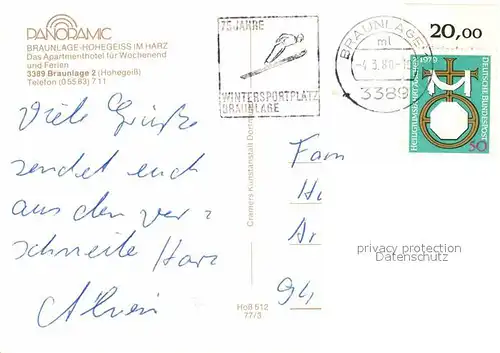 PANORAMIC
BRAUNLAGE-HOHEGEISS IM HARZ
Das Apartmenthotel für Wochenend
und Ferien
3389 Braunlage 2 (Hohegeiß)
Telefon (05583) 711
75 JAHRE
WINTERSPORTPLATZ
BRAUNLAGE
BRAUNLAGE
ml
-4.3.80-1
3389
20,00
HEILIGTUMSFAHRT AACHEN 1979
DEUTSCHE BUNDESPOST
50
Viele Grüße
sendet euch
aus den ver-
schneite Harz
Fam
Hu
Ar
94,
Cramers Kunstanstalt Dortm
Hoß 512
77/3
privacy protection
Datenschutz